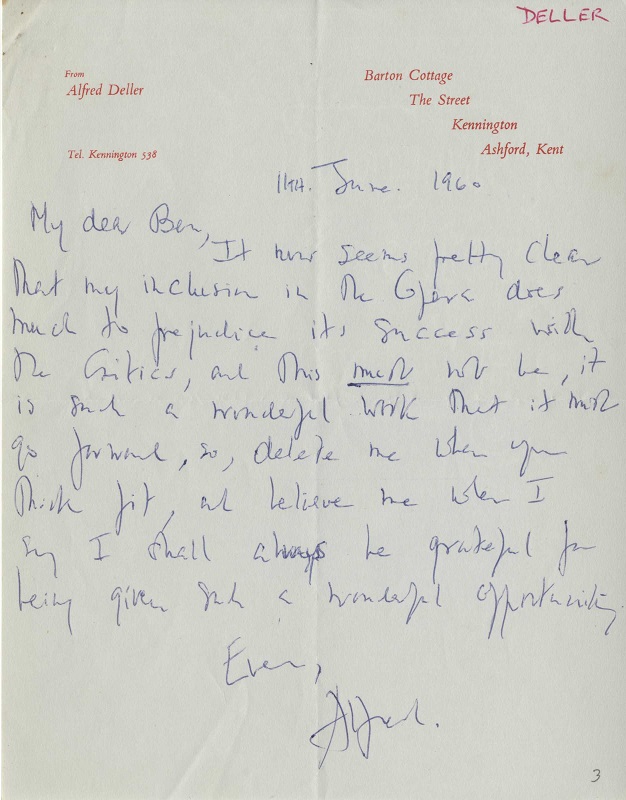 DELLER
From
Alfred Deller
Tel. Kennington 538
Barton Cottage
The Street
Kennington
Ashford, Kent
11th. June. 1960
My dear Ben,
It now seems pretty clear
that my inclusion in the Opera does
much to prejudice its success with
the Critics, and this must not be, it
is such a wonderful work that it must
go forward, so, delete me when you
think fit, and believe me when I
say I shall always be grateful for
being given such a wonderful opportunity.
Ever,
Alfred.
3